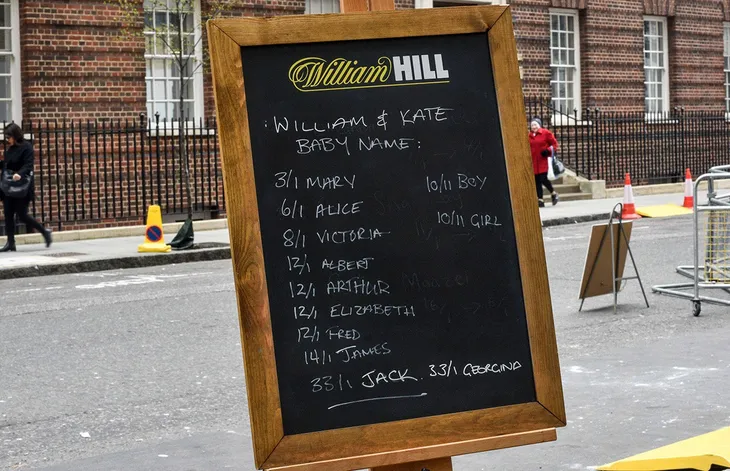 William HILL
WILLIAM & KATE
BABY NAME:
3/1 MARY
6/1 ALICE
8/1 VICTORIA
12/1 ALBERT
12/1 ARTHUR
12/1 ELIZABETH
12/1 FRED
14/1 JAMES
33/1 JACK. 33/1 GEORGINA
10/11 BOY
10/11 GIRL